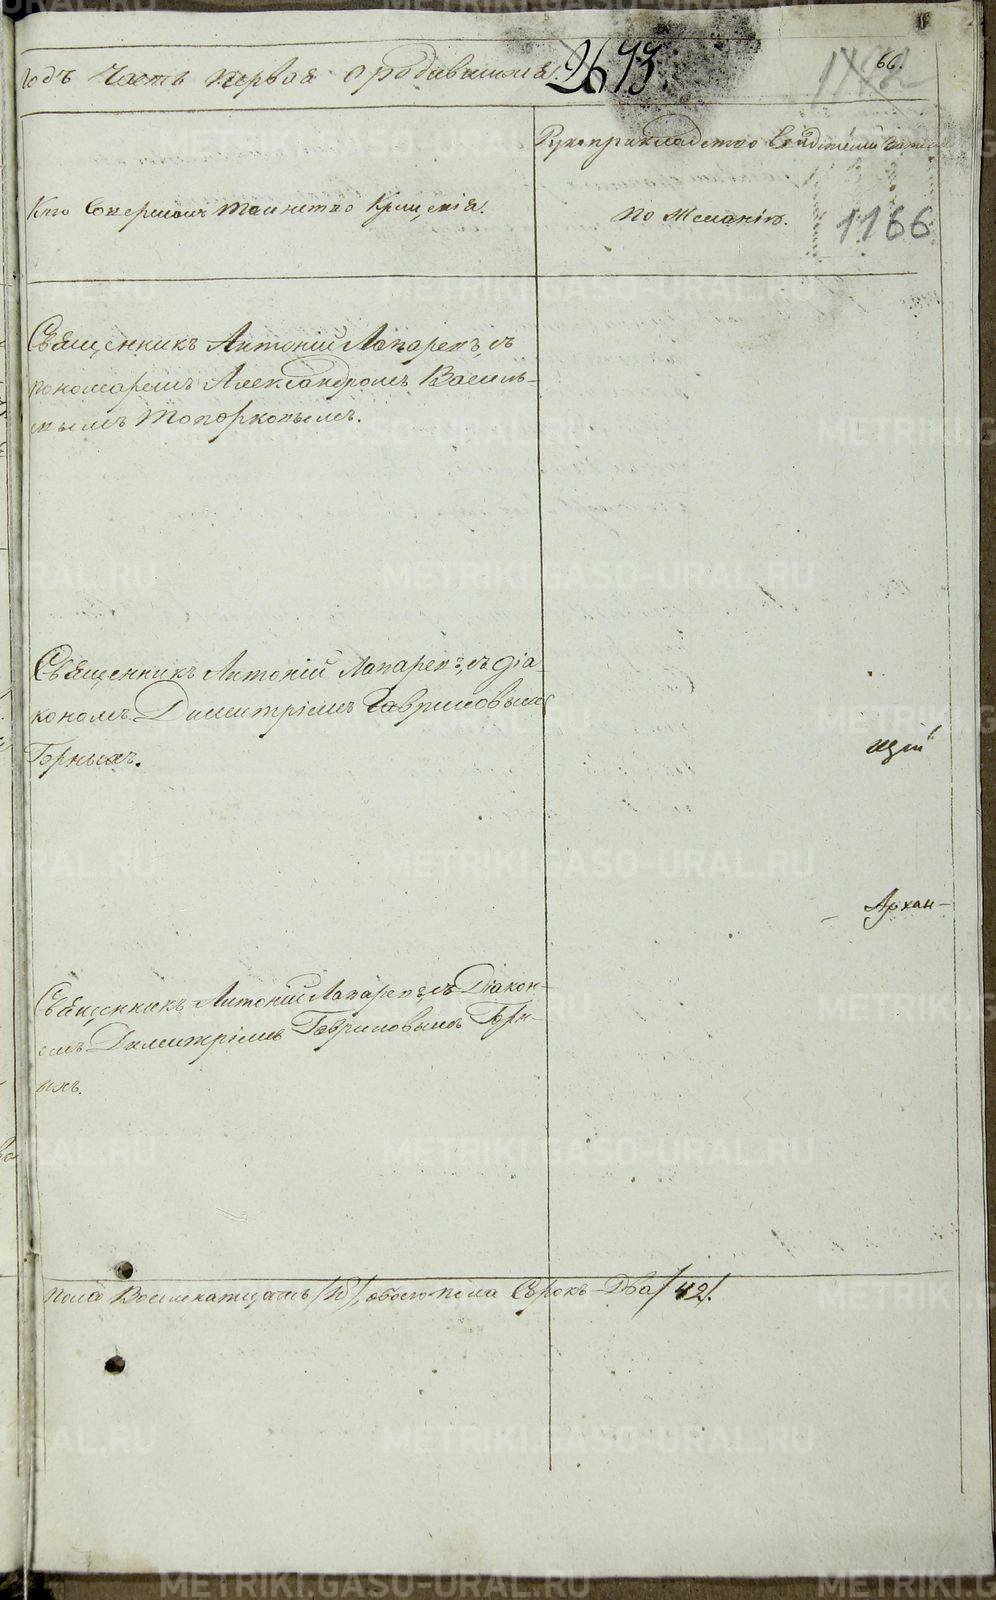 годъ часть первая о родившихся.
2673.
66.
1166
Кто совершалъ таинство крещенія.
Рукоприкладство свидѣтелей записи
по желанію.
Священникъ Антоній Лапаревъ, съ
пономаремъ Александромъ Василь-
Топорковымъ.
Священникъ Антоній Лапаревъ, съ діа-
кономъ Димитріемъ Гавриловымъ
Горныхъ.
щій
Архан-
Священникъ Антоній Лапаревъ, съ Діакон-
омъ Димитріемъ Гавриловымъ Горн-
ыхъ.
пола Восемнатцать /18/, обоего пола Сорокъ Два /42/.
METRIKI.GASO-URAL.RU